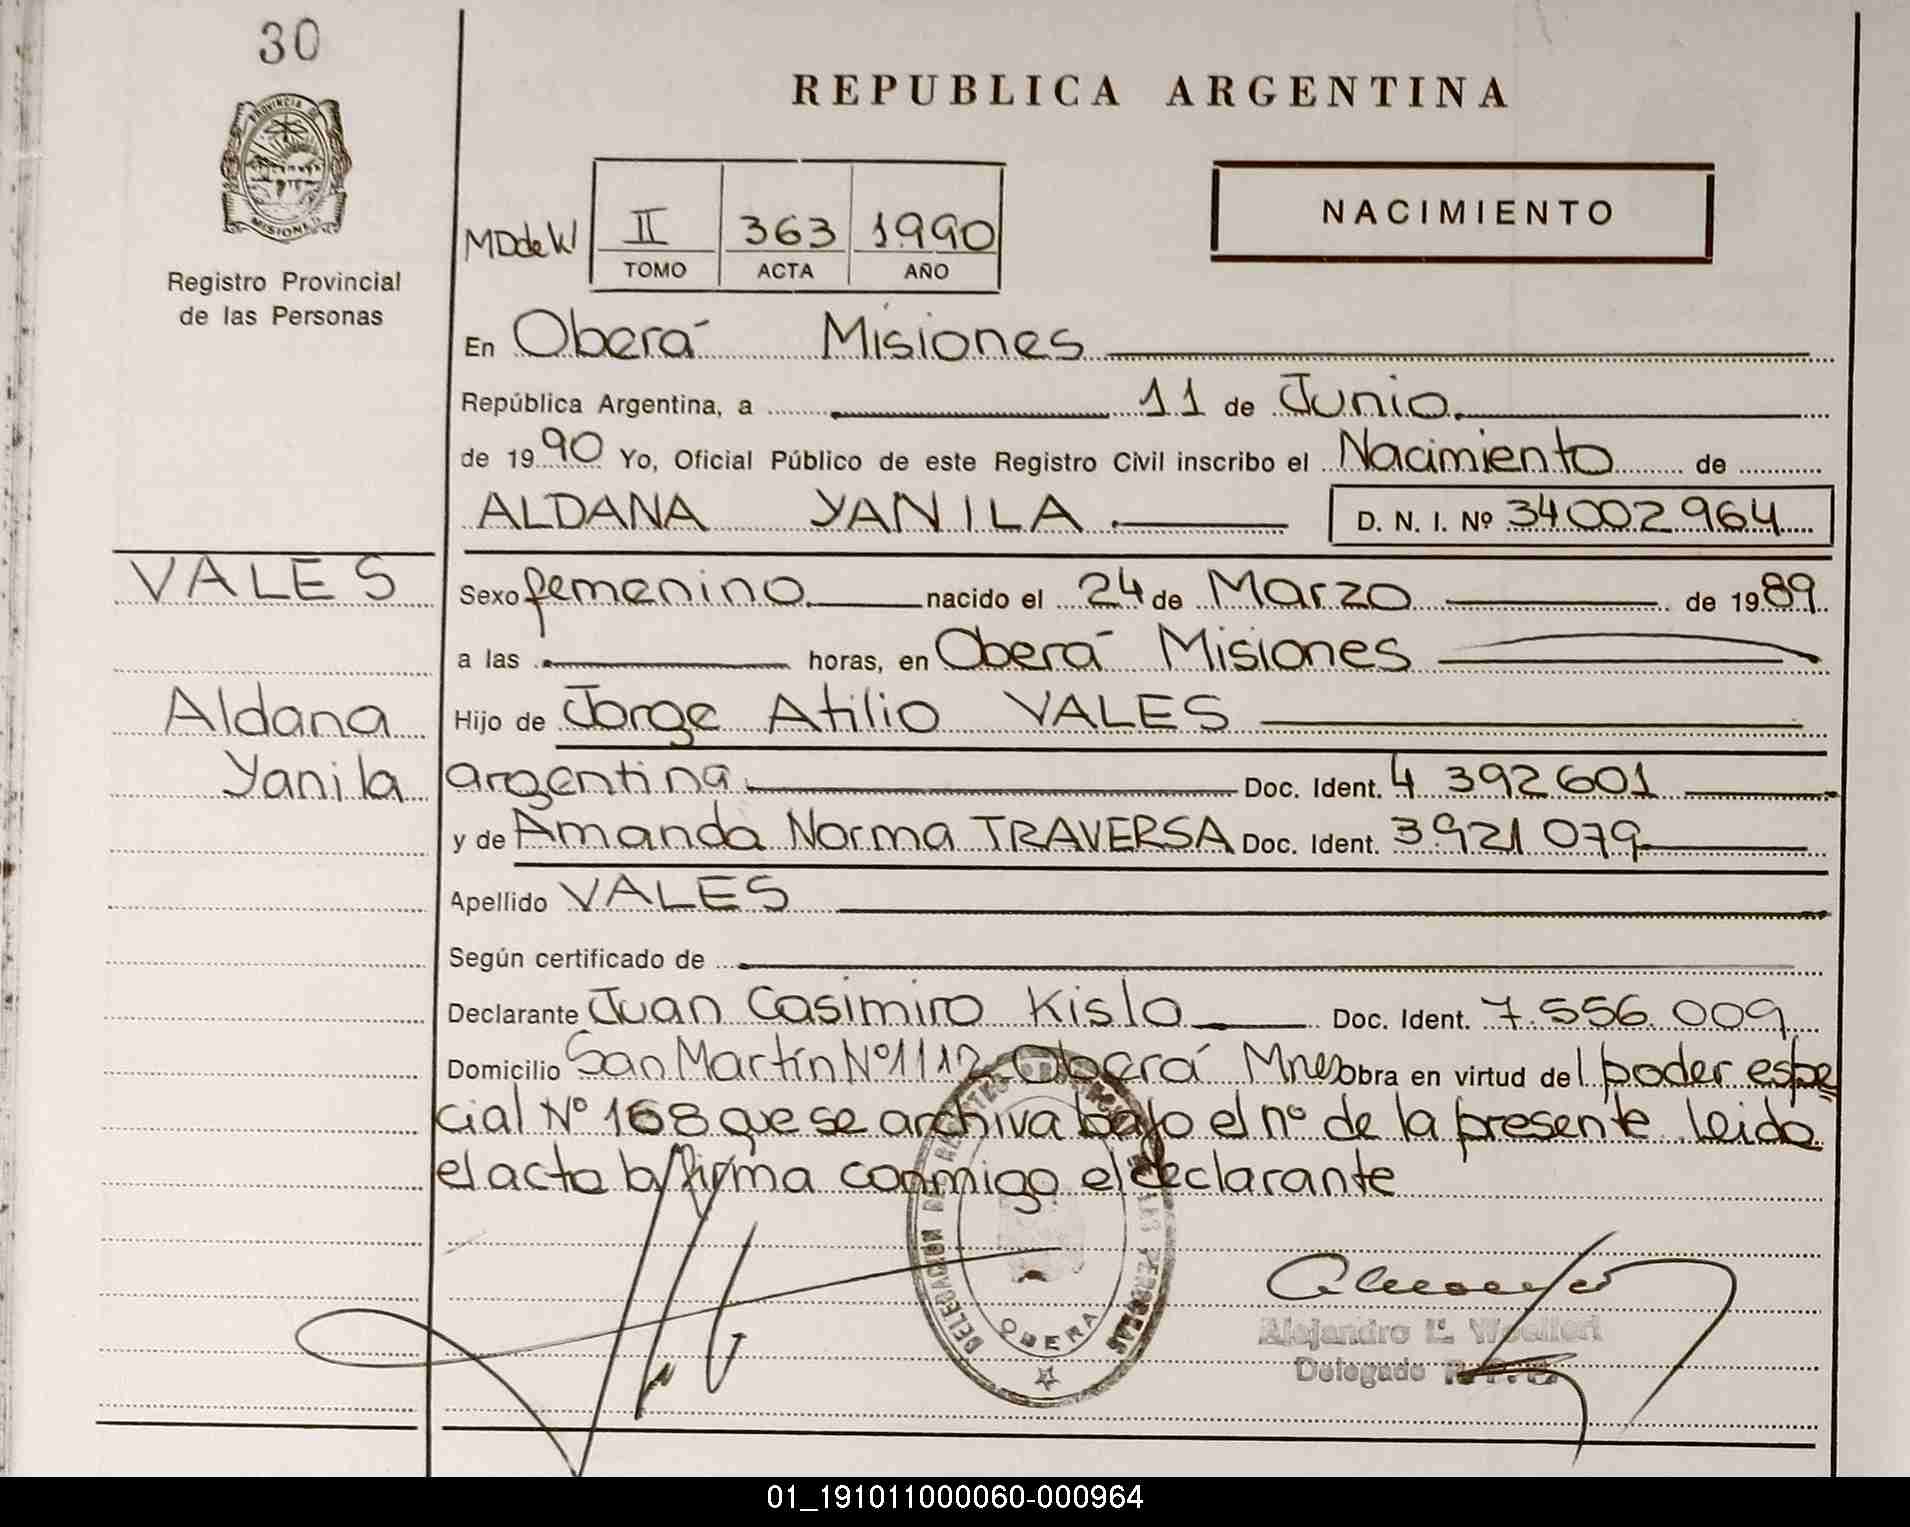 30
REPUBLICA ARGENTINA
PROVINCIA DE
MISIONES
Registro Provincial
de las Personas
MDdeW
II 363 1990
TOMO ACTA AÑO
NACIMIENTO
En Oberá Misiones
República Argentina, a 11 de Junio.
de 1990 Yo, Oficial Público de este Registro Civil inscribo el Nacimiento de
ALDANA YANILA. D. N. I. Nº 34002964
VALES
Sexo femenino nacido el 24 de Marzo de 1989
a las horas, en Oberá Misiones
Aldana
Hijo de Jorge Atilio VALES
Yanila
argentina Doc. Ident. 4 392601
y de Amanda Norma TRAVERSA Doc. Ident. 3921079
Apellido VALES
Según certificado de
Declarante Juan Casimiro Kislo Doc. Ident. 7.556.009
Domicilio San Martín Nº1112 Oberá Mnes obra en virtud del poder espe
cial Nº 168 que se archiva bajo el nº de la presente leida
el acta la firma conmigo el declarante
OBERA
Alejandro
Delegado
01_191011000060-000964